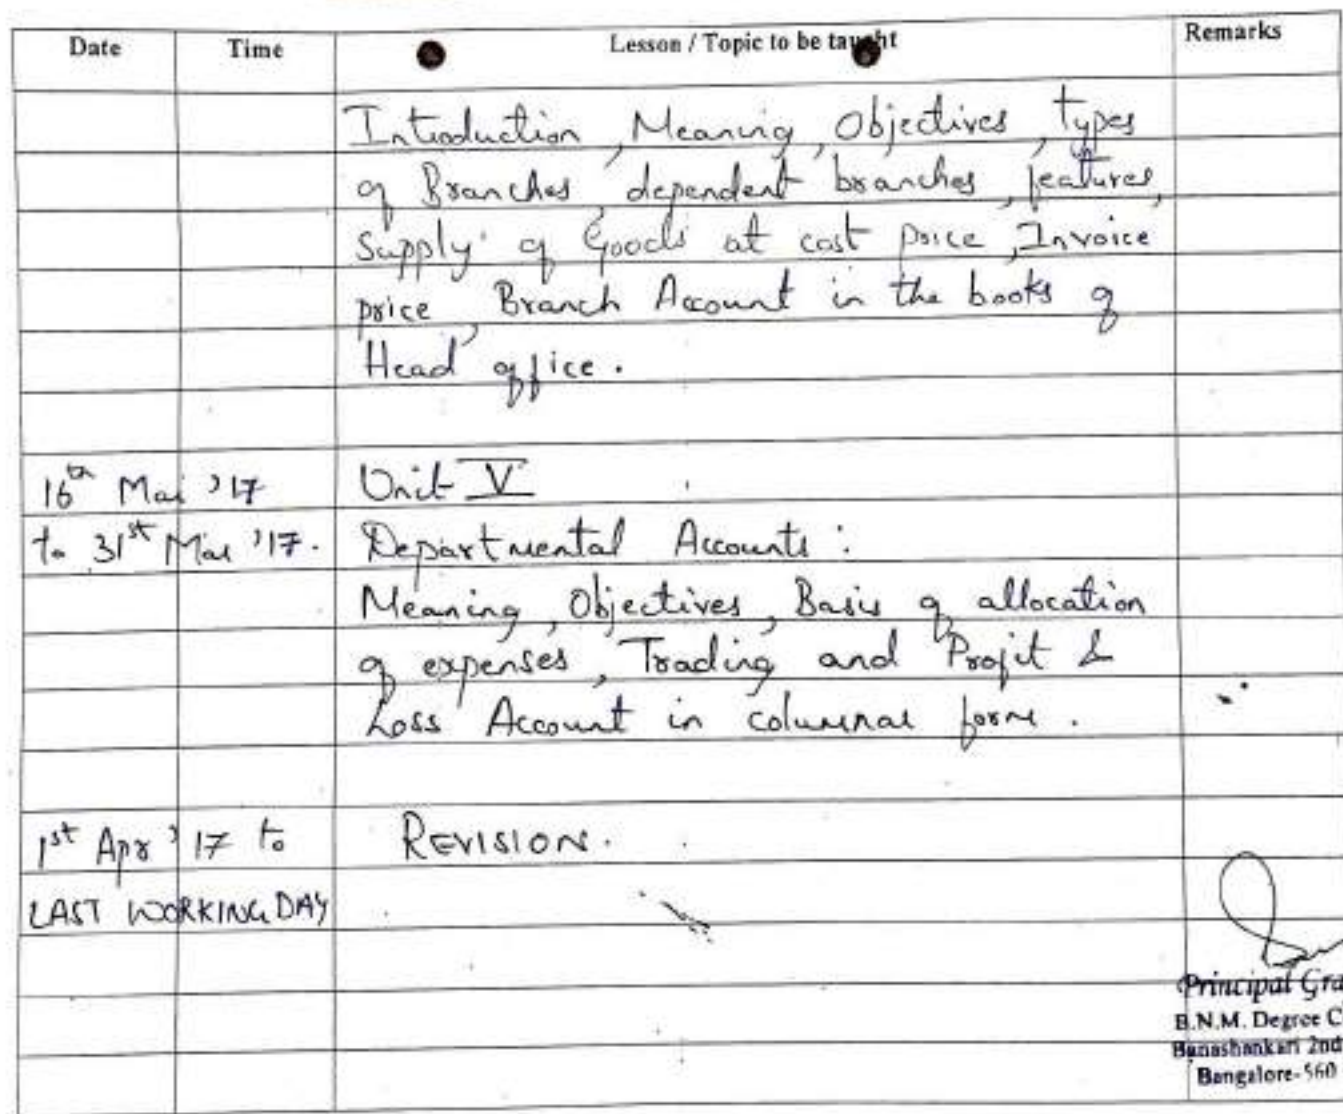 Date Time Lesson / Topic to be taught Remarks
Introduction, Meaning, Objectives, types
of Branches, dependent branches, features,
Supply of Goods at cost price, Invoice
price, Branch Account in the books of
Head office.
16th Mar '17 Unit V
to 31st Mar '17. Departmental Accounts :
Meaning, Objectives, Basis of allocation
of expenses, Trading and Profit &
Loss Account in columnar form.
1st Apr '17 to REVISION.
LAST WORKING DAY
Principal Gra
B.N.M. Degree C
Banashankari 2nd
Bangalore-560